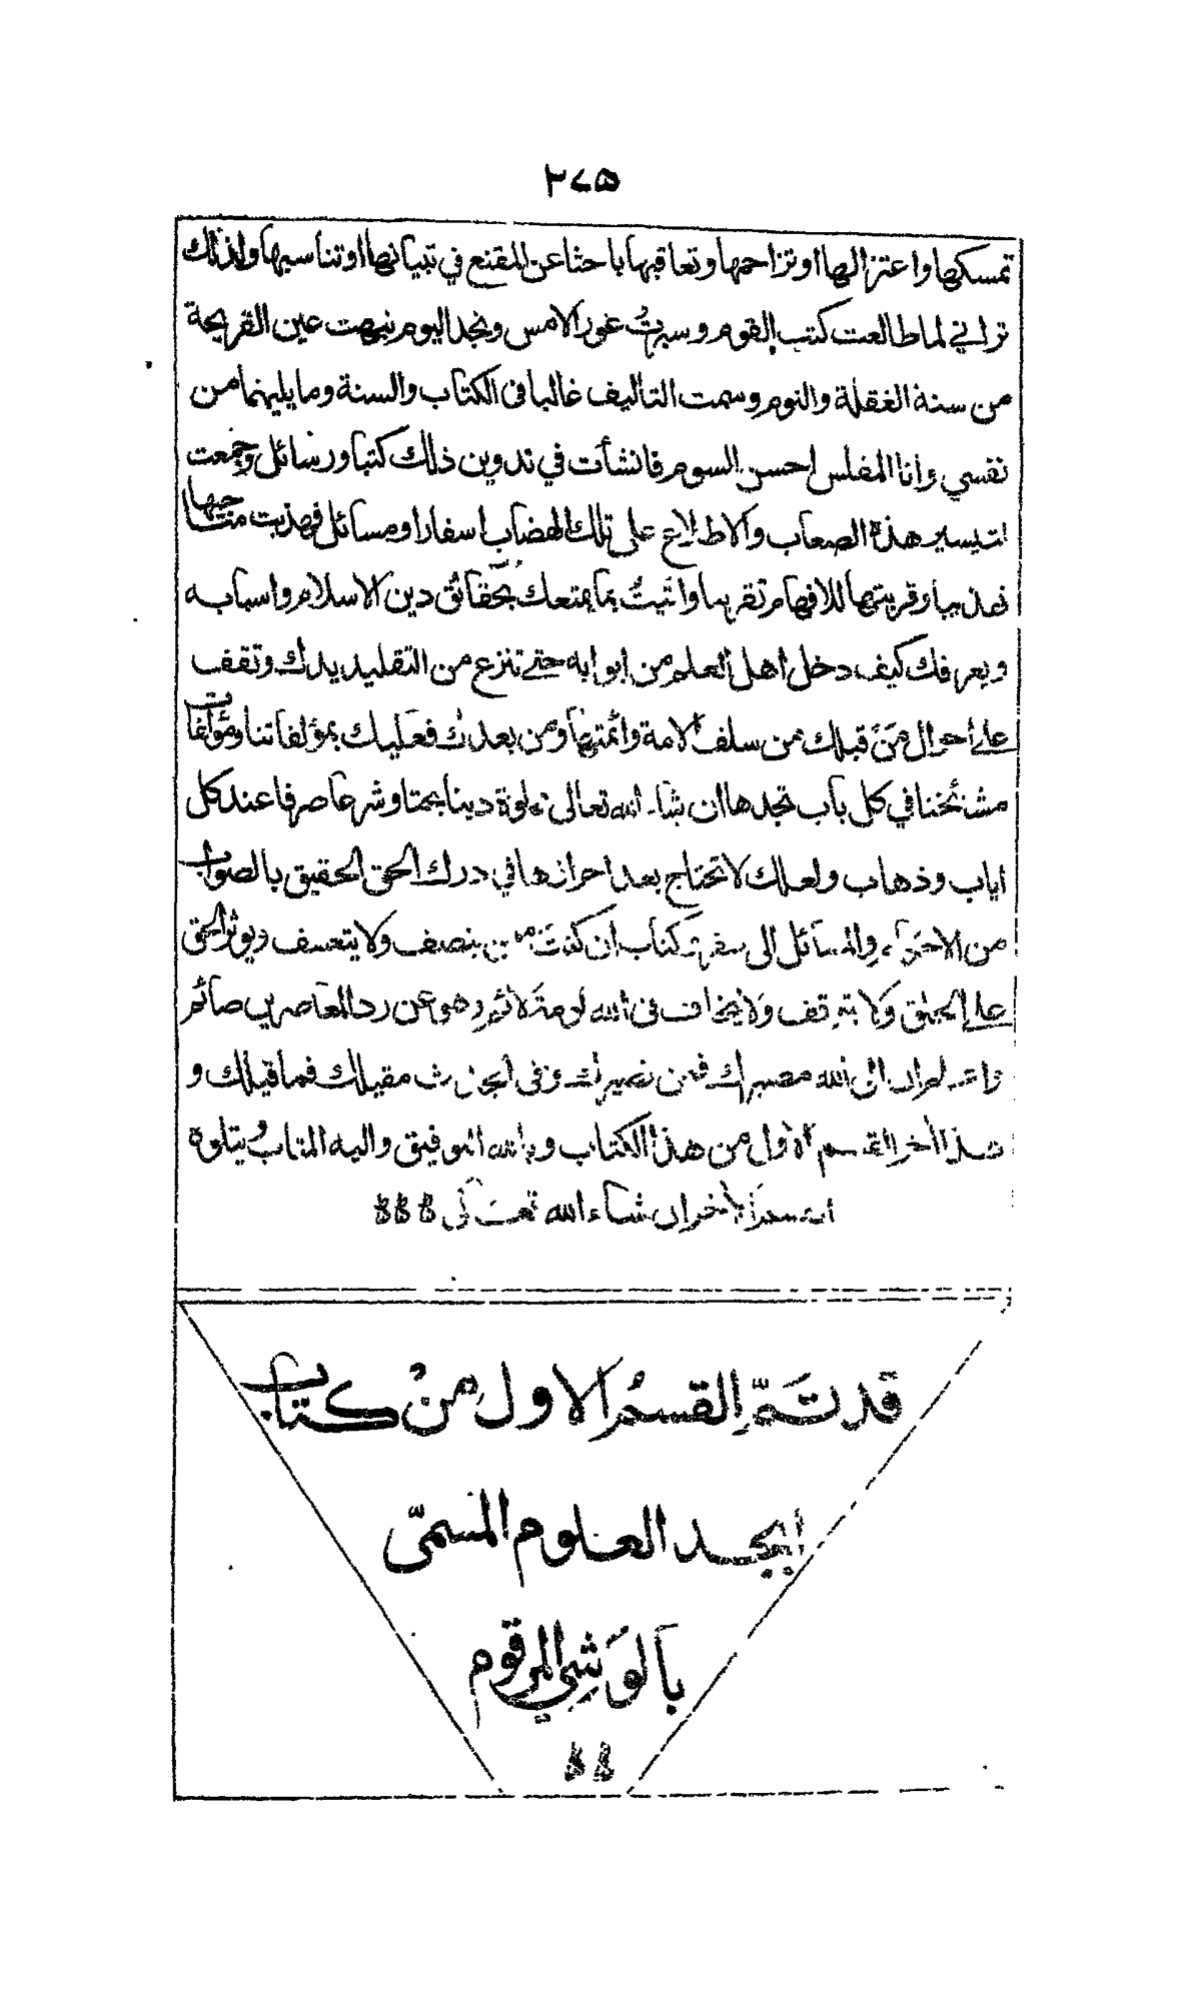 ٢٧٥
تمسكها واعتزالها او تزاحمها وتعاقبها باحثا عن المقنع في تبيانها او تناسبها ولذلك
تراني لما طالعت كتب القوم وسبرت غور الامس ونجد اليوم نبهت عين القريحة
من سنة الغفلة والنوم وسمت التأليف غالبا فى الكتاب والسنة وما يليهما من
نفسي وانا المفلس احسن السوم فانشأت في تدوين ذلك كتبا ورسائل وجمعت
لتيسير هذه الصعاب والاطلاع على تلك الهضاب اسفارا ومسائل فهذبت مناحيها
تهذيبا وقربتها للافهام تقريبا وأتيت بما يمتعك بحقائق دين الاسلام واسبابه
ويعرفك كيف دخل اهل العلم من ابوابه حتى تنزع من التقليد يدك وتقف
على أحوال من قبلك من سلف الامة وائمتها ومن بعدك فعليك بمؤلفاتنا ومؤلفات
مشائخنا في كل باب تجدها ان شاء الله تعالى تلوة دينا بحتا وشرعا صرفا عند كل
اياب وذهاب ولعلك لا تحتاج بعد احرازها في درك الحق الحقيق بالصواب
من الاحكام والمسائل الى سفر وكتاب ان كنت ممن ينصف ولا يتعسف ويوثر الحق
على الخلق ولا يتوقف ولا يخاف فى الله لومة لائم وهو عن رد المعاصرين صائم
واعلم ان الى الله مصيرك فمن نصيرك وفى الجدث مقيلك فما قيلك و
هذا أخر القسم الاول من هذا الكتاب وبالله التوفيق واليه المتاب ويتلوه
القسم الاخر ان شاء الله تعالى
قد تم القسم الاول من كتاب
ابجد العلوم المسمى
بالوشي المرقوم